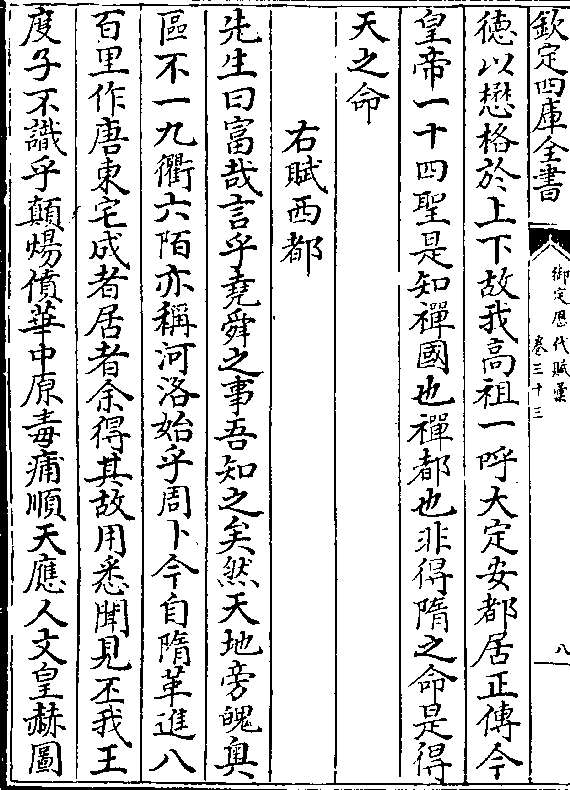 欽定四庫全書
御定歴代賦彙
卷三十三
八
德以懋格於上下故我高祖一呼大定安都居正傳今
皇帝一十四聖是知禪國也禪都也非得隋之命是得
天之命
右賦西都
先生曰富哉言乎堯舜之事吾知之矣然天地旁魄奥
區不一九衢六陌亦稱河洛始乎周卜今自隋革進八
百里作唐東宅成者居者余得其故用悉聞見丕我王
度子不識乎顛煬僨華中原毒痡順天應人文皇赫圖